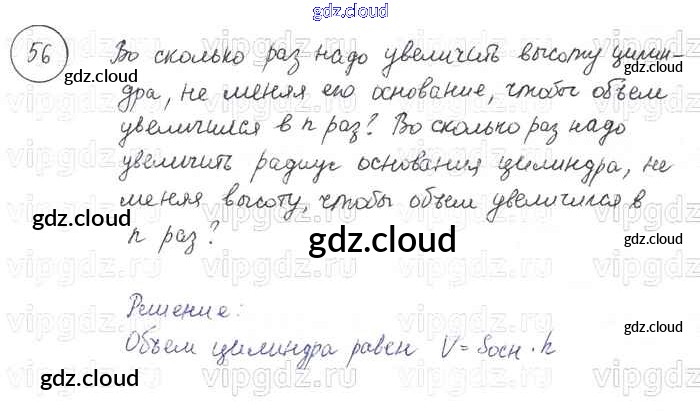 gdz.cloud
56 Во сколько раз надо увеличить высоту цилин-
дра, не меняя его основание, чтобы объем
увеличился в n раз? Во сколько раз надо
увеличить радиус основания цилиндра, не
меняя высоту, чтобы объем увеличился в
n раз?
Решение:
Объем цилиндра равен V = Sосн · h
gdz.cloud
gdz.cloud
gdz.cloud
gdz.cloud
gdz.cloud
gdz.cloud
gdz.cloud
gdz.cloud